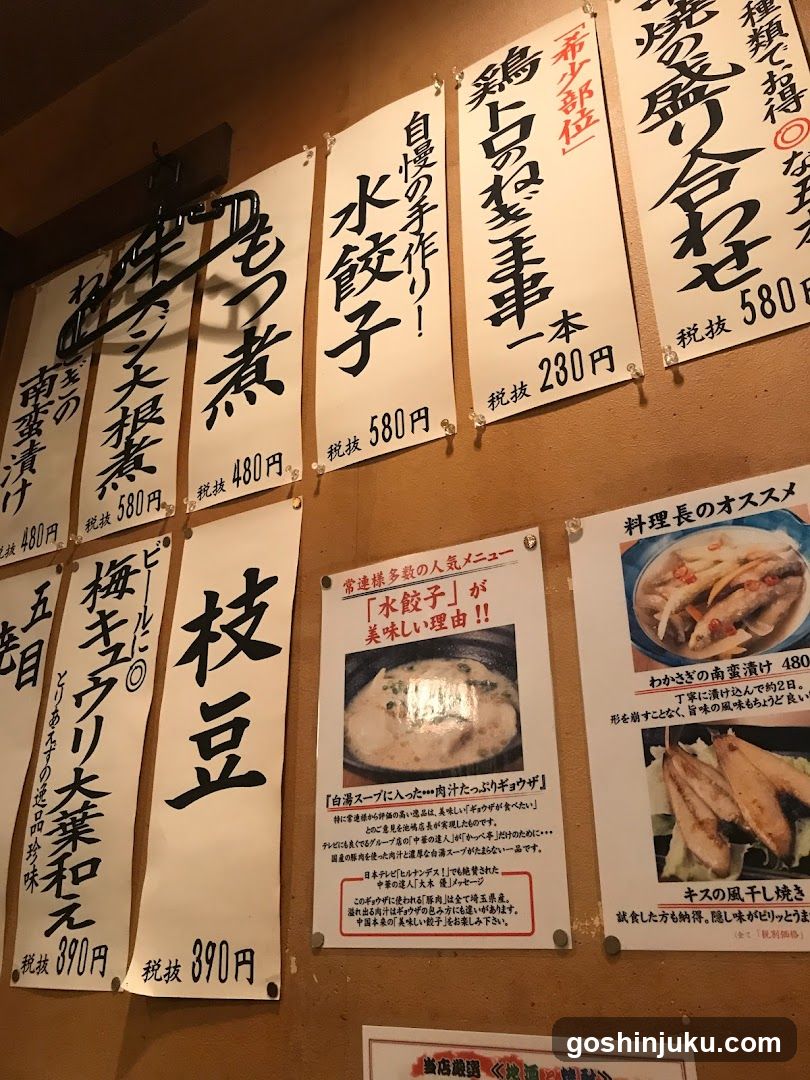 種類でお得◎な
焼の盛り合わせ
税抜 580円
「希少部位」
鶏トロのねぎま串
一本
税抜 230円
自慢の手作り!
水餃子
税抜 580円
もつ煮
税抜 480円
牛スジ大根煮
税抜 580円
ねぎの
南蛮漬け
税抜 480円
枝豆
税抜 390円
ビールに◎
梅キュウリ大葉和え
とりあえずの逸品珍味
税抜 390円
五目
焼
常連様多数の人気メニュー
「水餃子」が
美味しい理由!!
『白湯スープに入った・・・肉汁たっぷりギョウザ』
特に常連様から評価の高い逸品は、美味しい「ギョウザが食べたい」
とのご意見を池嶋店長が実現したものです。
テレビにも良くでるグループ店の「中華の達人」が「かっぺ亭」だけのために・・・
国産の豚肉を使った肉汁と濃厚な白湯スープがたまらない一品です。
日本テレビ「ヒルナンデス!」でも絶賛された
中華の達人「大木 優」メッセージ
このギョウザに使われる「豚肉」は全て埼玉県産。
溢れ出る肉汁はギョウザの包み方にも違いがあります。
中国本来の「美味しい餃子」をお楽しみ下さい。
料理長のオススメ
わかさぎの南蛮漬け 480
丁寧に漬け込んで約2日。
形を崩すことなく、旨味の風味もちょうど良い
キスの風干し焼き
試食した方も納得。隠し味がピリッとうま
(全て「税別価格」
当店厳選 《地酒と焼酎》
goshinjuku.com